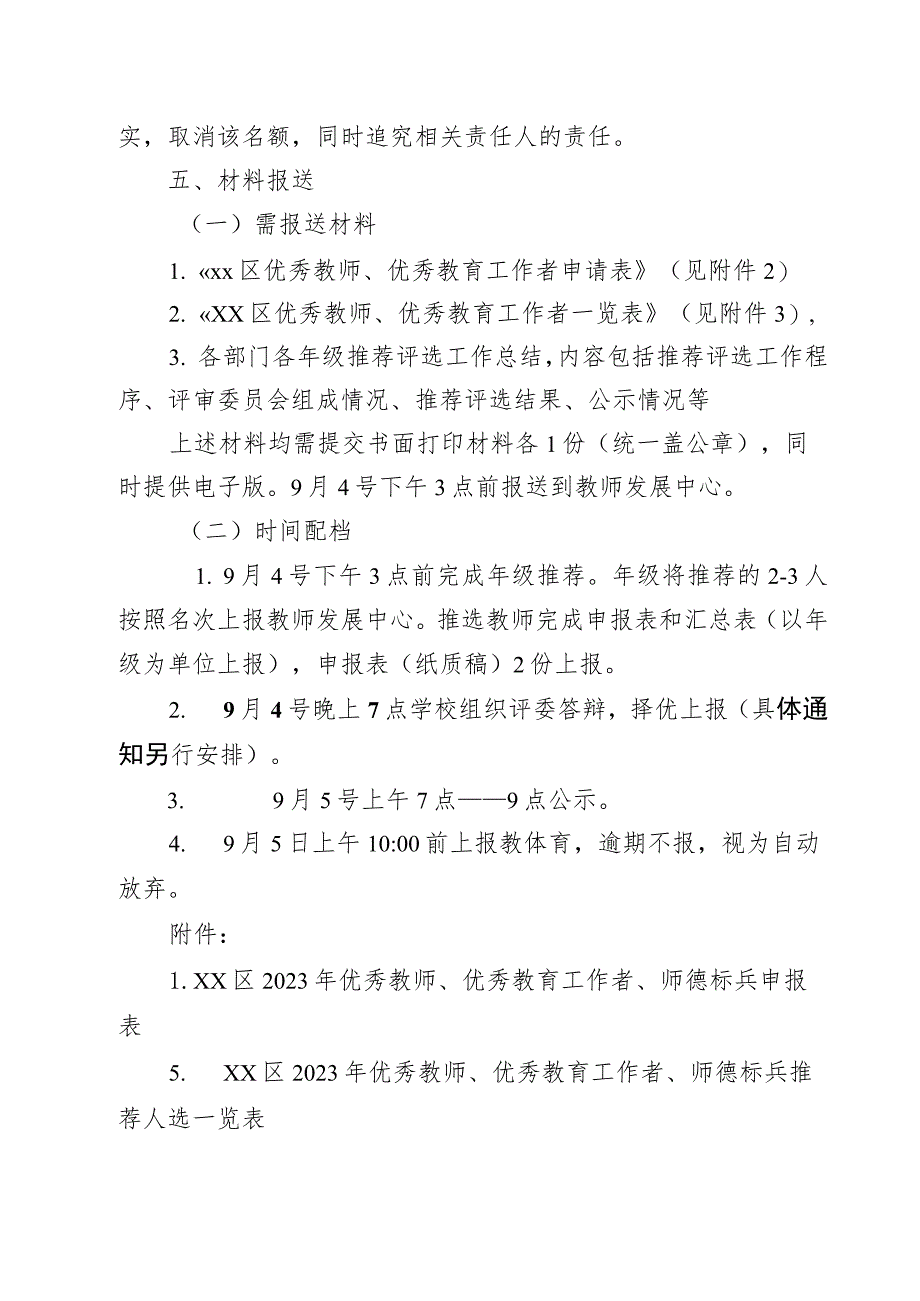 实，取消该名额，同时追究相关责任人的责任。
五、材料报送
（一）需报送材料
1. «xx区优秀教师、优秀教育工作者申请表》（见附件2）
2. «XX区优秀教师、优秀教育工作者一览表》（见附件3），
3. 各部门各年级推荐评选工作总结，内容包括推荐评选工作程
序、评审委员会组成情况、推荐评选结果、公示情况等
上述材料均需提交书面打印材料各1份（统一盖公章），同
时提供电子版。9月4号下午3点前报送到教师发展中心。
（二）时间配档
1. 9月4号下午3点前完成年级推荐。年级将推荐的2-3人
按照名次上报教师发展中心。推选教师完成申报表和汇总表（以年
级为单位上报），申报表（纸质稿）2份上报。
2. 9月4号晚上7点学校组织评委答辩，择优上报（具体通
知另行安排）。
3. 9月5号上午7点——9点公示。
4. 9月5日上午10:00前上报教体育，逾期不报，视为自动
放弃。
附件：
1. XX区2023年优秀教师、优秀教育工作者、师德标兵申报
表
5. XX区2023年优秀教师、优秀教育工作者、师德标兵推
荐人选一览表